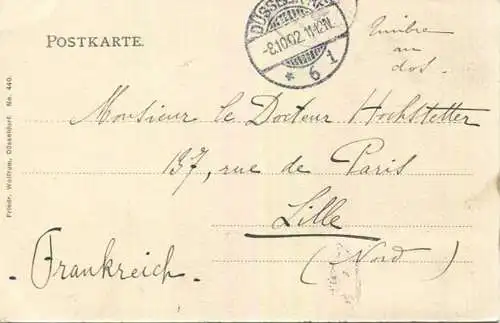 POSTKARTE.
DÜSSELDORF
-8.10.02.11-12N.
* 6 1
Timbre
au
dos.
Monsieur le Docteur Hochstetter
137, rue de Paris
Lille
(Nord)
- Frankreich -
Friedr. Wolfrum, Düsseldorf. No. 440.